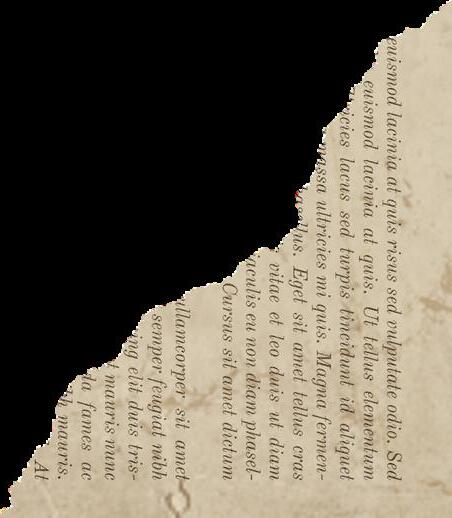 euismod lacinia at quis risus sed vulputate odio. Sed
euismod lacinia at quis. Ut tellus elementum
icies lacus sed turpis tincidunt id aliquet
massa ultricies mi quis. Magna fermen-
llus. Eget sit amet tellus cras
vitae et leo duis ut diam
aculis eu non diam phasel-
Cursus sit amet dictum
ullamcorper sit amet
semper feugiat nibh
ing elit duis tris-
t mauris nunc
da fames ac
mauris.
At